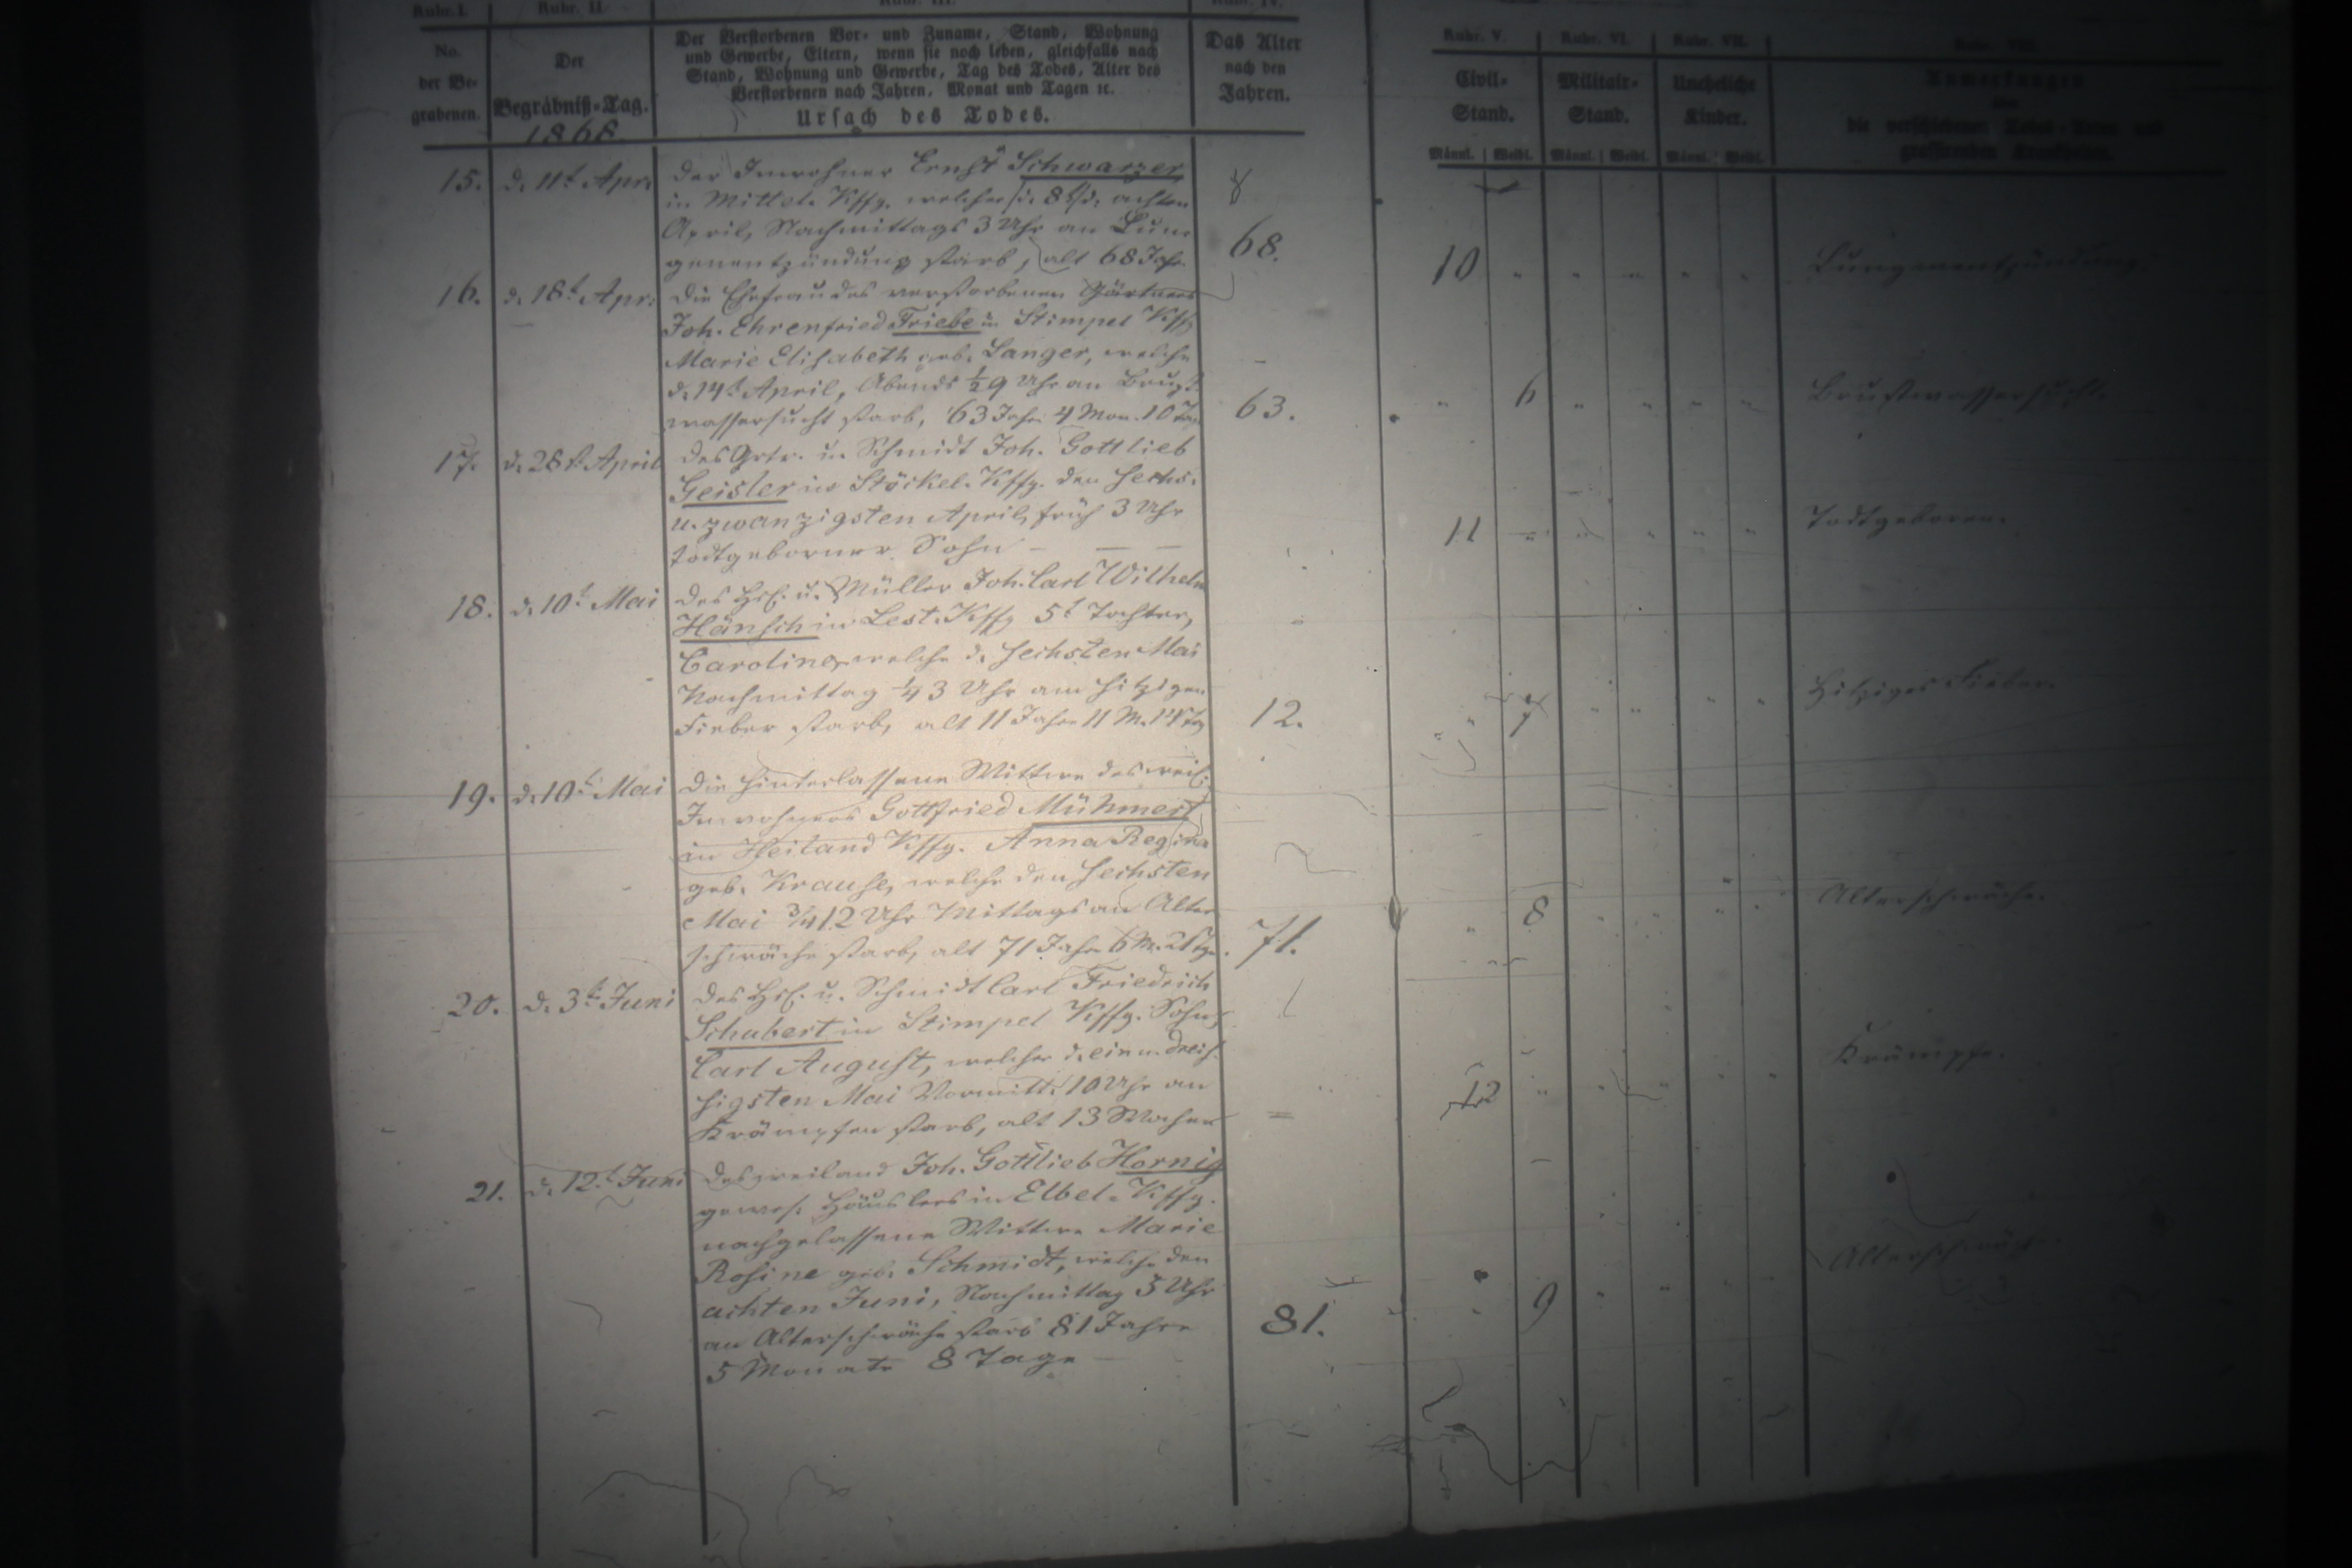 Rubr. I.
Rubr. II.
Rubr. III.
Rubr. IV.
No.
der Be-
grabenen.
Der
Begräbniß-Tag.
1868.
Der Verstorbenen Vor- und Zuname, Stand, Wohnung
und Gewerbe, Eltern, wenn sie noch leben, gleichfalls nach
Stand, Wohnung und Gewerbe, Tag des Todes, Alter des
Verstorbenen nach Jahren, Monat und Tagen ꝛc.
Ursach des Todes.
Das Alter
nach den
Jahren.
Rubr. V.
Rubr. VI.
Rubr. VII.
Rubr. VIII.
Civil-
Stand.
Militair-
Stand.
Uneheliche
Kinder.
Anmerkungen
über
die verschiedenen Todes-Arten und
grassirenden Krankheiten.
Männl. Weibl. Männl. Weibl. Männl. Weibl.
15. d. 11t Apr. der Inwohner Ernst Schwarzer
in Mittel-Kffg. welcher d. 8t/d. achten
April, Nachmittags 3 Uhr an Lun-
genentzündung starb, alt 68 Jahr 68. 10 " " " " " Lungenentzündung.
16. d. 18t Apr. die Ehefrau des verstorbenen Gärtners
Joh. Ehrenfried Friebe in Stimpel Kffg
Marie Elisabeth geb. Langer, welche
d. 14t April, Abends ½9 Uhr an Brust-
wassersucht starb, 63 Jahr 4 Mon. 10 Tag 63. " 6 " " " " Brustwassersucht.
17. d. 28t April des Grtr. u. Schmidt Joh. Gottlieb
Geisler in Stöckel-Kffg. den sechs-
u. zwanzigsten April, früh 3 Uhr
todtgeborner Sohn — — — 11 " " " " " Todtgeboren.
18. d. 10t Mai des Hsl. u. Müller Joh. Carl Wilhelm
Hänsch in Lest-Kffg 5t Tochter,
Caroline, welche d. sechsten Mai
Nachmittag ¼3 Uhr am hitzigen
Fieber starb, alt 11 Jahr 11 M. Tg 12. " 7 " " " " Hitziges Fieber.
19. d. 10t Mai die hinterlassene Wittwe des weil.
Inwohners Gottfried Mühmert
in Heiland Kffg. Anna Regina
geb. Krause, welche den sechsten
Mai ¾12 Uhr Mittags an Alter-
schwäche starb, alt 71 Jahr 6 M. Tg. 71. " 8 " " " " Alterschwäche.
20. d. 3t Juni des Hsl. u. Schmidt Carl Friedrich
Schubert in Stimpel Kffg. Sohn,
Carl August, welcher d. ein u. dreis-
sigsten Mai Vormitt. 10 Uhr an
Krämpfen starb, alt 13 Wochen = 12 " " " " " Krämpfe.
21. d. 12t Juni des weiland Joh. Gottlieb Hornig
gewes. Häuslers in Elbel-Kffg.
nachgelassene Wittwe Marie
Rosine geb. Schmidt, welche den
achten Juni, Nachmittag 5 Uhr
an Alterschwäche starb 81 Jahre
5 Monate 8 Tage — 81. " 9 " " " " Alterschwäche.